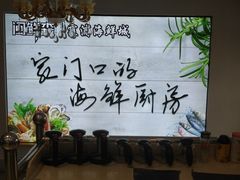 海鲜城
家门口的
海鲜厨房